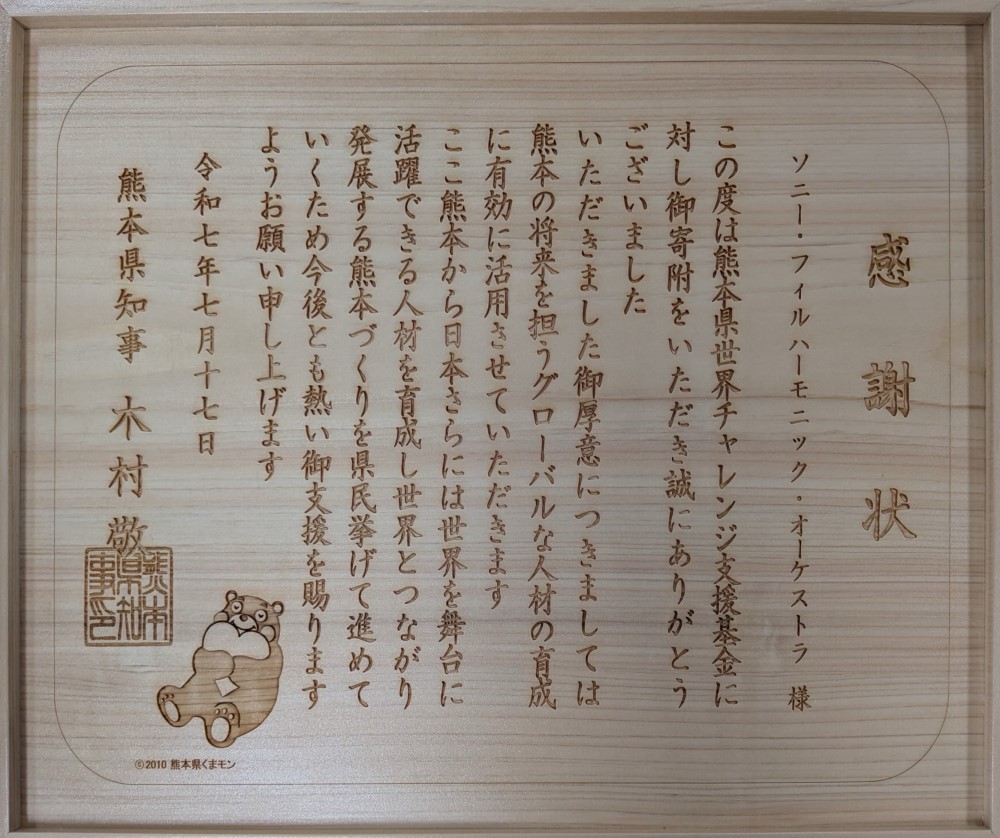 感謝状
ソニー・フィルハーモニック・オーケストラ 様
この度は熊本県世界チャレンジ支援基金に
対し御寄附をいただき誠にありがとう
ございました
いただきました御厚意につきましては
熊本の将来を担うグローバルな人材の育成
に有効に活用させていただきます
ここ熊本から日本さらには世界を舞台に
活躍できる人材を育成し世界とつながり
発展する熊本づくりを県民挙げて進めて
いくため今後とも熱い御支援を賜ります
ようお願い申し上げます
令和七年七月十七日
熊本県知事 木村 敬
熊本
県知
事印
©2010 熊本県くまモン